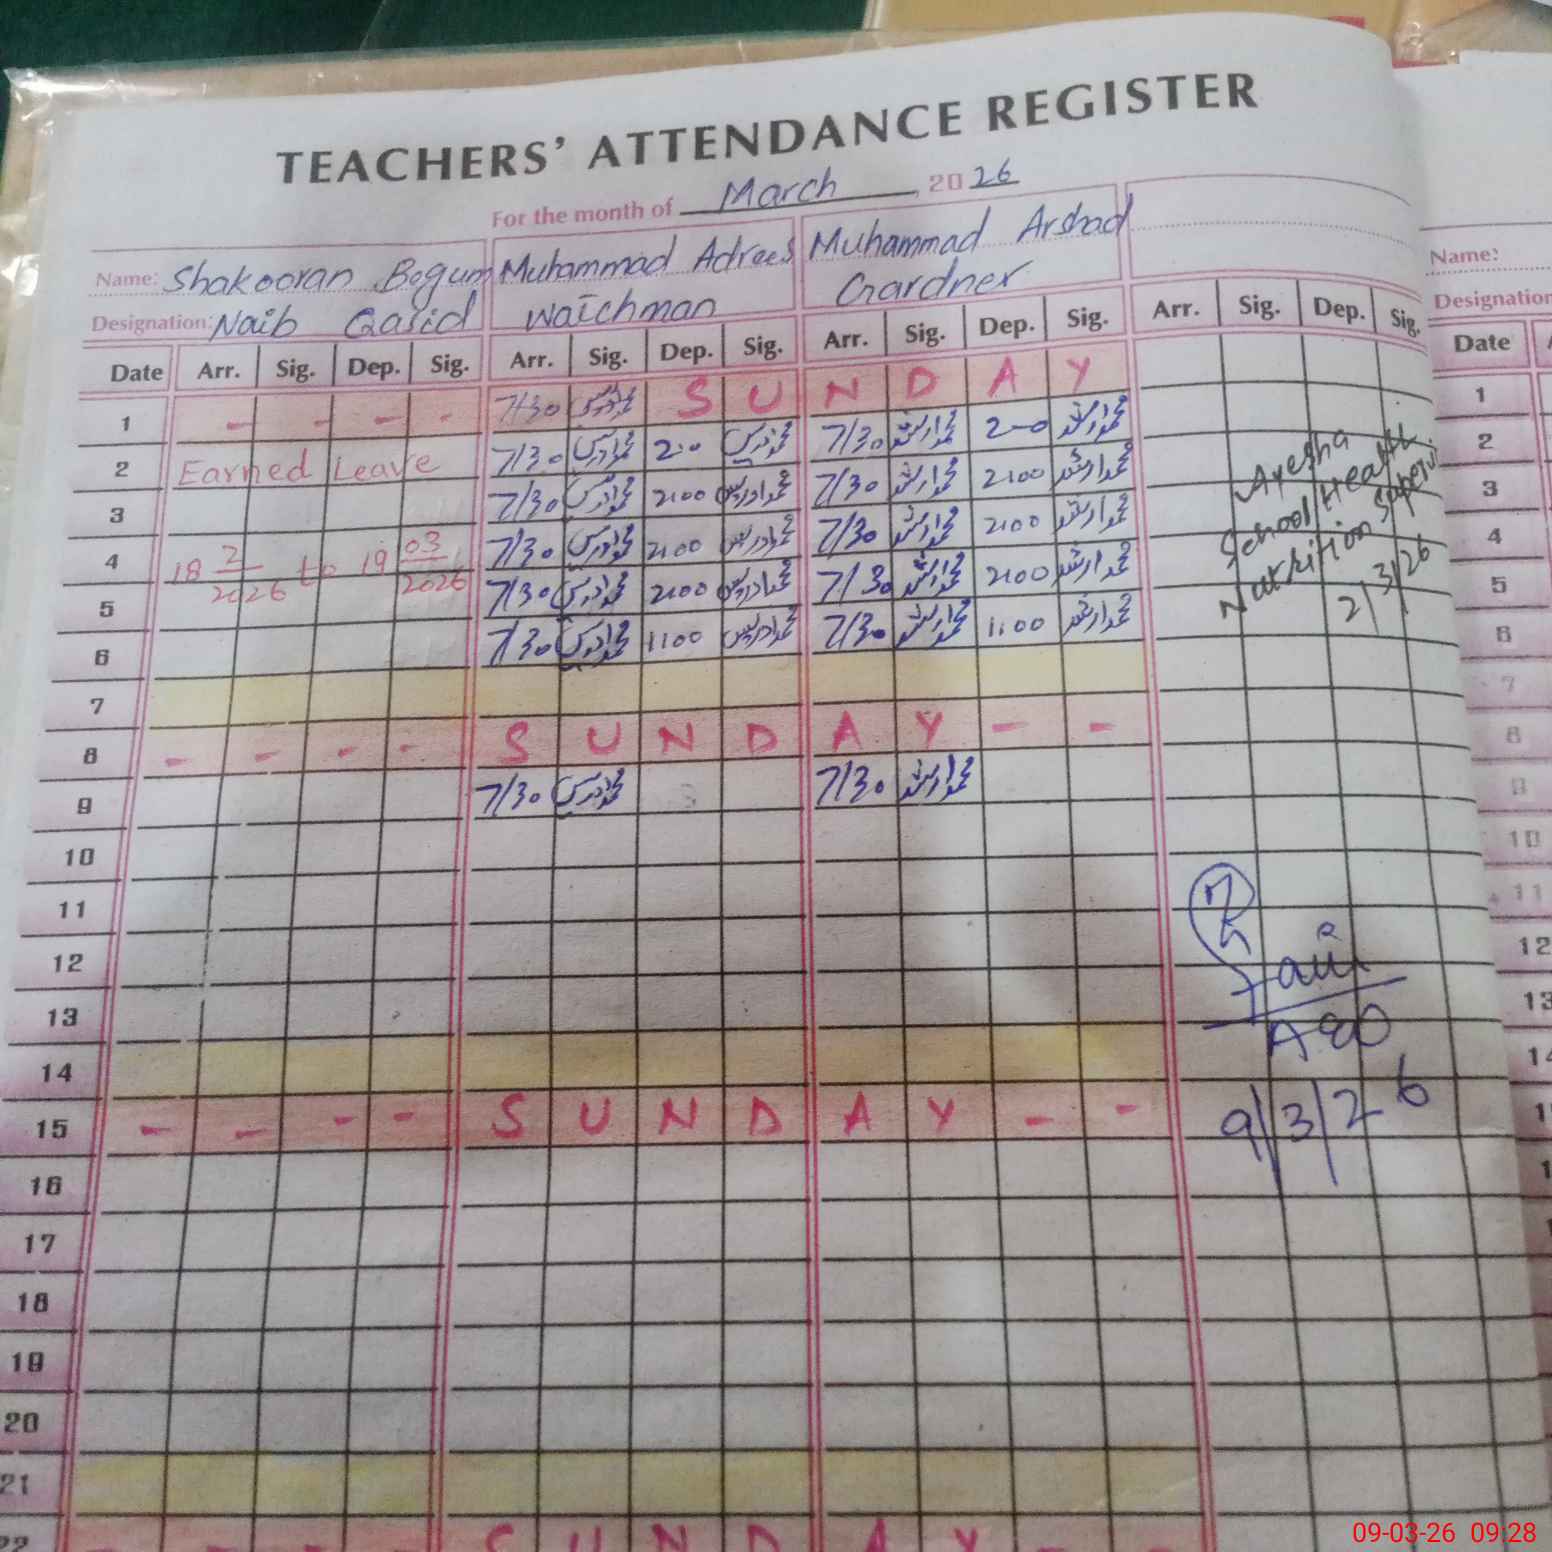 TEACHERS' ATTENDANCE REGISTER
For the month of March, 2026
Name: Shakooran Begum Muhammad Adrees Muhammad Arshad Name:
Designation: Naib Qasid Watchman Gardner Designation
Date Arr. Sig. Dep. Sig. Arr. Sig. Dep. Sig. Arr. Sig. Dep. Sig. Arr. Sig. Dep. Sig. Date
1 - - - - 7/30 محمد ادریس S U N D A Y 1
2 Earned Leave 7/30 محمد ادریس 2:00 محمد ادریس 7/30 محمد ارشد 2-00 محمد ارشد 2
3 7/30 محمد ادریس 2:00 محمد ادریس 7/30 محمد ارشد 2:00 محمد ارشد 3
4 18 2/2026 to 19 03/2026 7/30 محمد ادریس 2:00 محمد ادریس 7/30 محمد ارشد 2:00 محمد ارشد 4
5 7/30 محمد ادریس 2:00 محمد ادریس 7/30 محمد ارشد 2:00 محمد ارشد 5
6 7/30 محمد ادریس 1:00 محمد ادریس 7/30 محمد ارشد 1:00 محمد ارشد 6
Ayesha
School Health
Nutrition
2/3/26
7 7
8 - - - - S U N D A Y - - 8
9 7/30 محمد ادریس 7/30 محمد ارشد 9
10 10
11 11
12 12
13 13
14 14
15 - - - - S U N D A Y - -
9/3/26
16
17
18
19
20
21
22 - - - - S U N D A Y - -
09-03-26 09:28